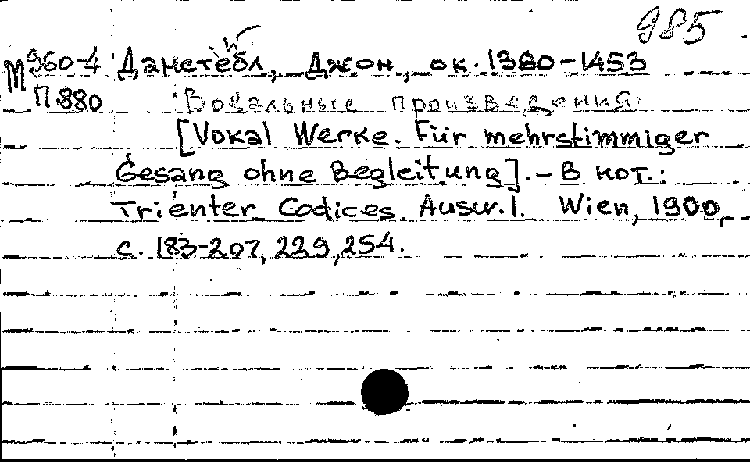 985
М 960-4 Данстебл, Джон, ок. 1380-1453
П 880 Вокальные произведения.
[Vokal Werke. Für mehrstimmiger
Gesang ohne Begleitung]. - В нот.:
Trienter Codices. Ausw. I. Wien, 1900,
с. 183-207, 229, 254.